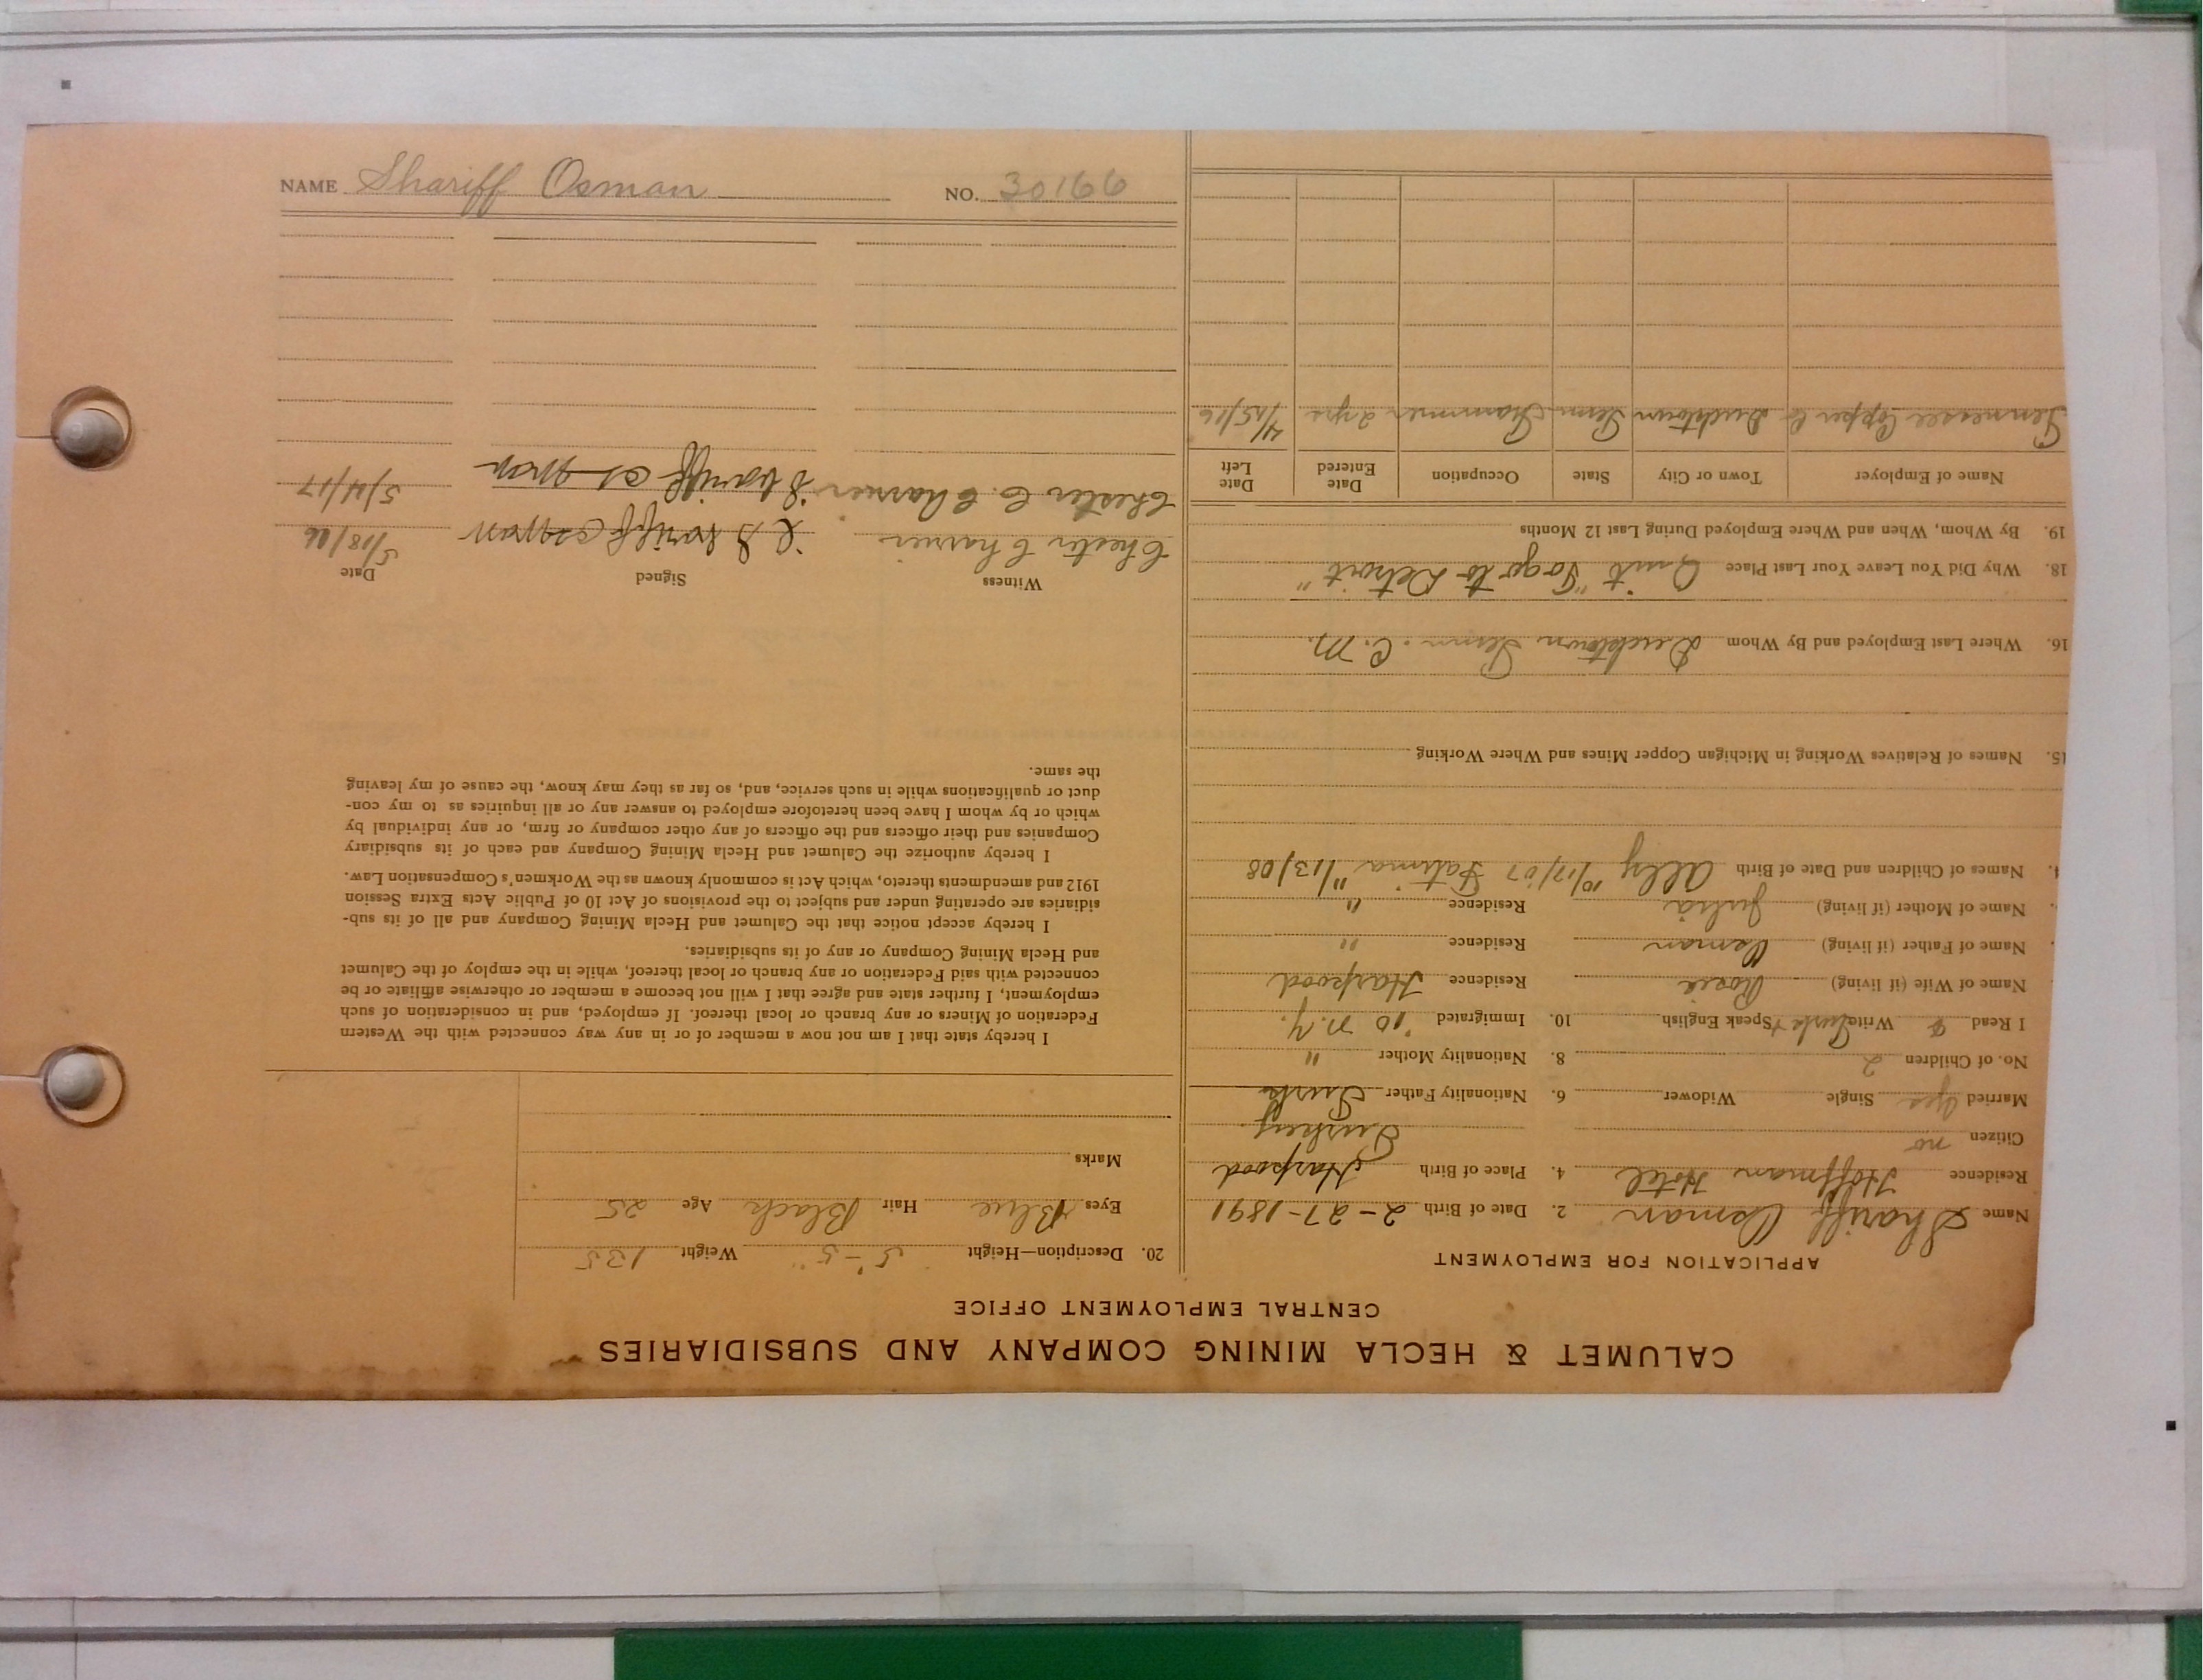 CALUMET & HECLA MINING COMPANY AND SUBSIDIARIES
CENTRAL EMPLOYMENT OFFICE
APPLICATION FOR EMPLOYMENT
Name Shariff Osman 2. Date of Birth 2-27-1891
Residence Hoffman Hotel 4. Place of Birth Harpood
Citizen no Turkey
Married yes Single Widower 6. Nationality Father Turk
No. of Children 2 8. Nationality Mother "
I Read & Write Turk Speak English 10. Immigrated '10 N.Y.
Name of Wife (if living) Rosie Residence Harpood
Name of Father (if living) Osman Residence "
Name of Mother (if living) Julia Residence "
Names of Children and Date of Birth Ally 10/17/07 Fatima 11/13/08
15. Names of Relatives Working in Michigan Copper Mines and Where Working
16. Where Last Employed and By Whom Ducktown Tenn. C. M.
18. Why Did You Leave Your Last Place Quit "To go to Detroit"
19. By Whom, When and Where Employed During Last 12 Months
Name of Employer Town or City State Occupation Date Entered Date Left
Tennessee Copper Co Ducktown Tenn Trammer 2 yrs 4/15/16
20. Description—Height 5'-5" Weight 135
Eyes Blue Hair Black Age 25
Marks
I hereby state that I am not now a member of or in any way connected with the Western
Federation of Miners or any branch or local thereof. If employed, and in consideration of such
employment, I further state and agree that I will not become a member or otherwise affiliate or be
connected with said Federation or any branch or local thereof, while in the employ of the Calumet
and Hecla Mining Company or any of its subsidiaries.
I hereby accept notice that the Calumet and Hecla Mining Company and all of its sub-
sidiaries are operating under and subject to the provisions of Act 10 of Public Acts Extra Session
1912 and amendments thereto, which Act is commonly known as the Workmen's Compensation Law.
I hereby authorize the Calumet and Hecla Mining Company and each of its subsidiary
Companies and their officers and the officers of any other company or firm, or any individual by
which or by whom I have been heretofore employed to answer any or all inquiries as to my con-
duct or qualifications while in such service, and, so far as they may know, the cause of my leaving
the same.
Witness Signed Date
Chester Charrier Shariff Osman 5/18/16
Chester C. Charrier Shariff Osman 5/4/17
NAME Shariff Osman NO. 30166